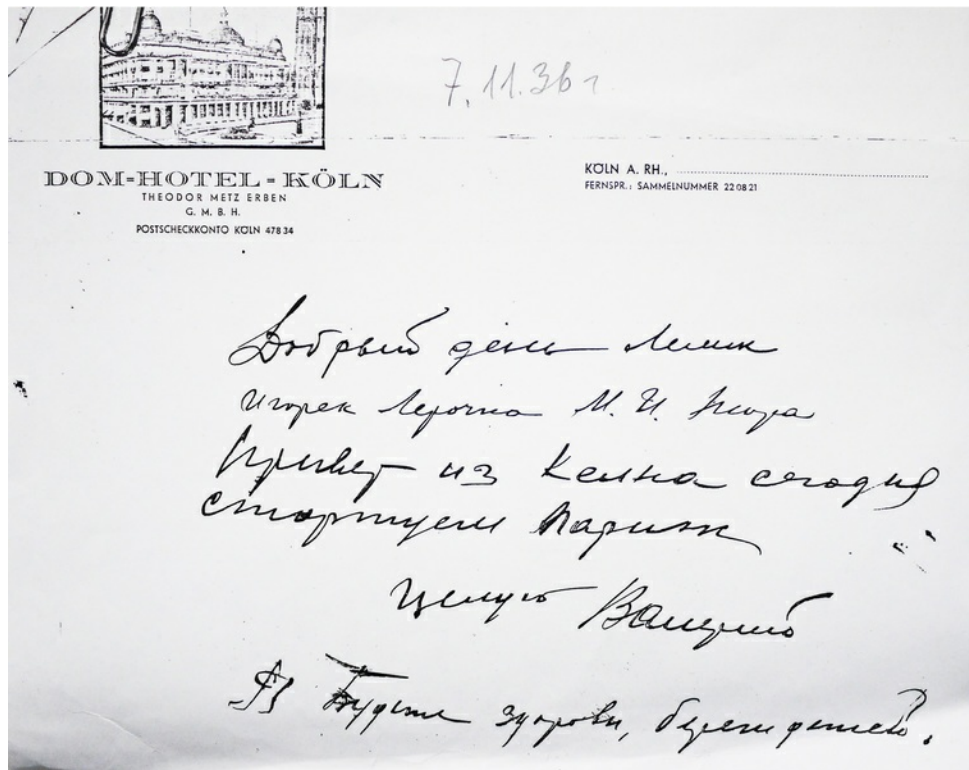 7.11.36 г
DOM-HOTEL-KÖLN
THEODOR METZ ERBEN
G. M. B. H.
POSTSCHECKKONTO KÖLN 478 34
KÖLN A. RH.,
FERNSPR.: SAMMELNUMMER 22 08 21
Добрый день Лелик
Игорек Лерочка М. И.
Привет из Келна сегодня
стартуем Париж
Целую Валерий
Будьте здоровы, берегите детей.